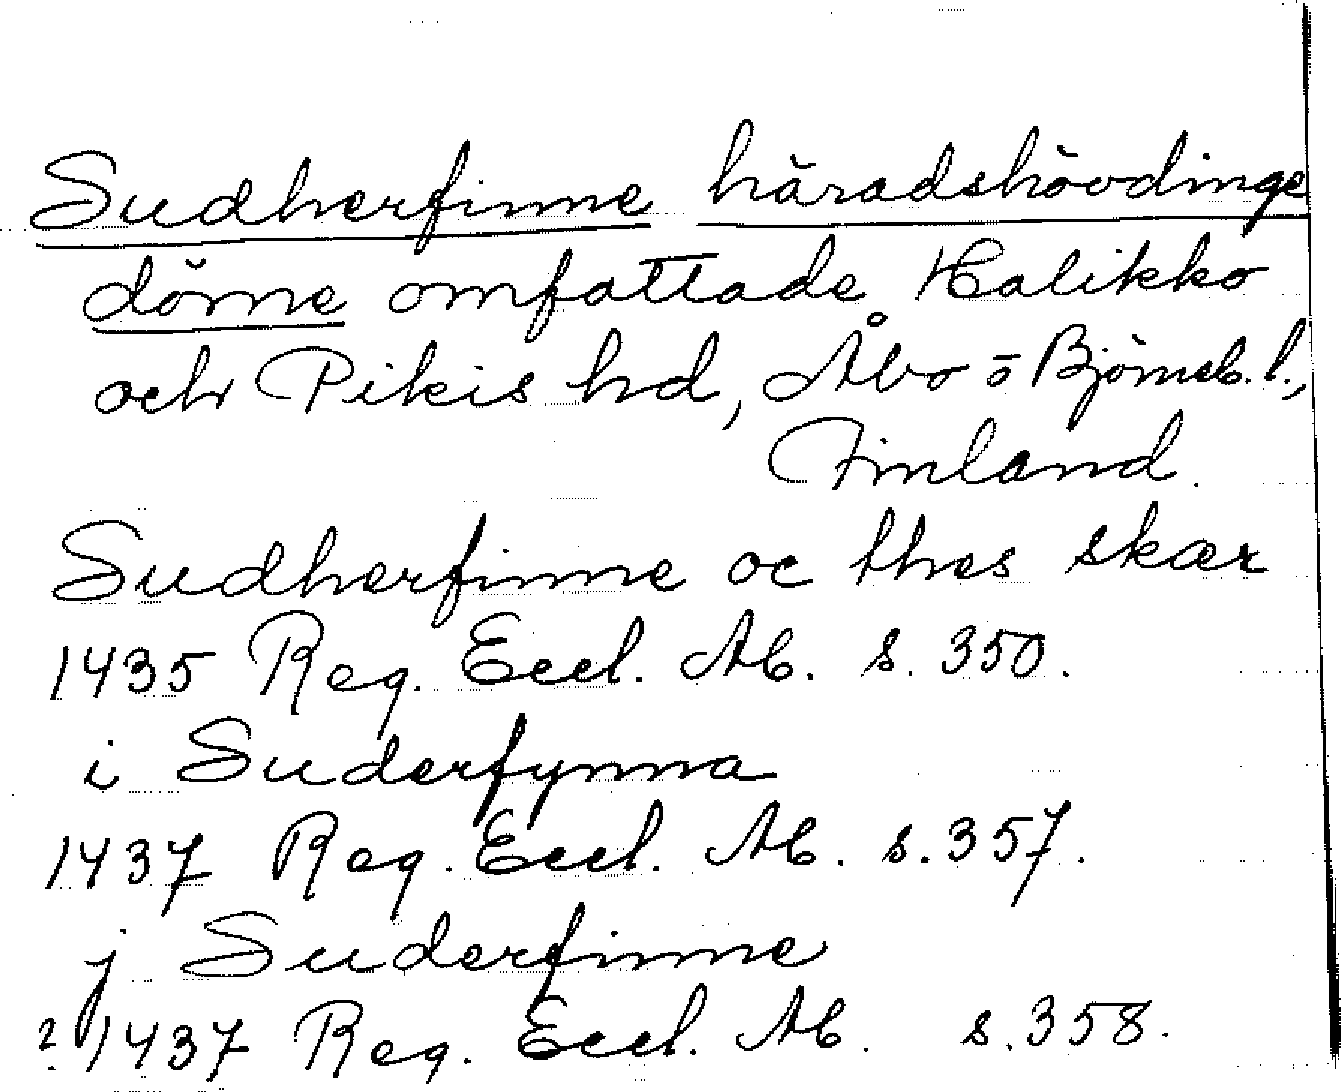 Sudherfinne häradshövdinge
döme omfattade Halikko
och Pikis hd, Åbo o Björneb. l.,
Finland.
Sudherfinne oc thes skær
1435 Reg. Eccl. Ab. s. 350.
i Suderfynna
1437 Reg. Eccl. Ab. s. 357.
j Suderfinne
? 1437 Reg. Eccl. Ab. s. 358.